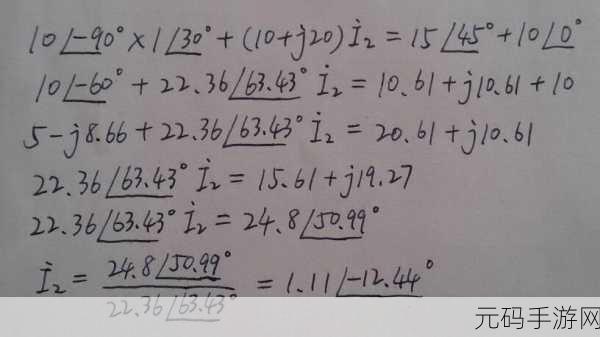 10∠-90° × 1∠30° + (10+j20) İ₂ = 15∠45° + 10∠0°
10∠-60° + 22.36∠63.43° İ₂ = 10.61+j10.61+10
5-j8.66+22.36∠63.43° İ₂ = 20.61+j10.61
22.36∠63.43° İ₂ = 15.61+j19.27
22.36∠63.43° İ₂ = 24.8∠50.99°
İ₂ = 24.8∠50.99° / 22.36∠63.43° = 1.11∠-12.44°
元码手游网